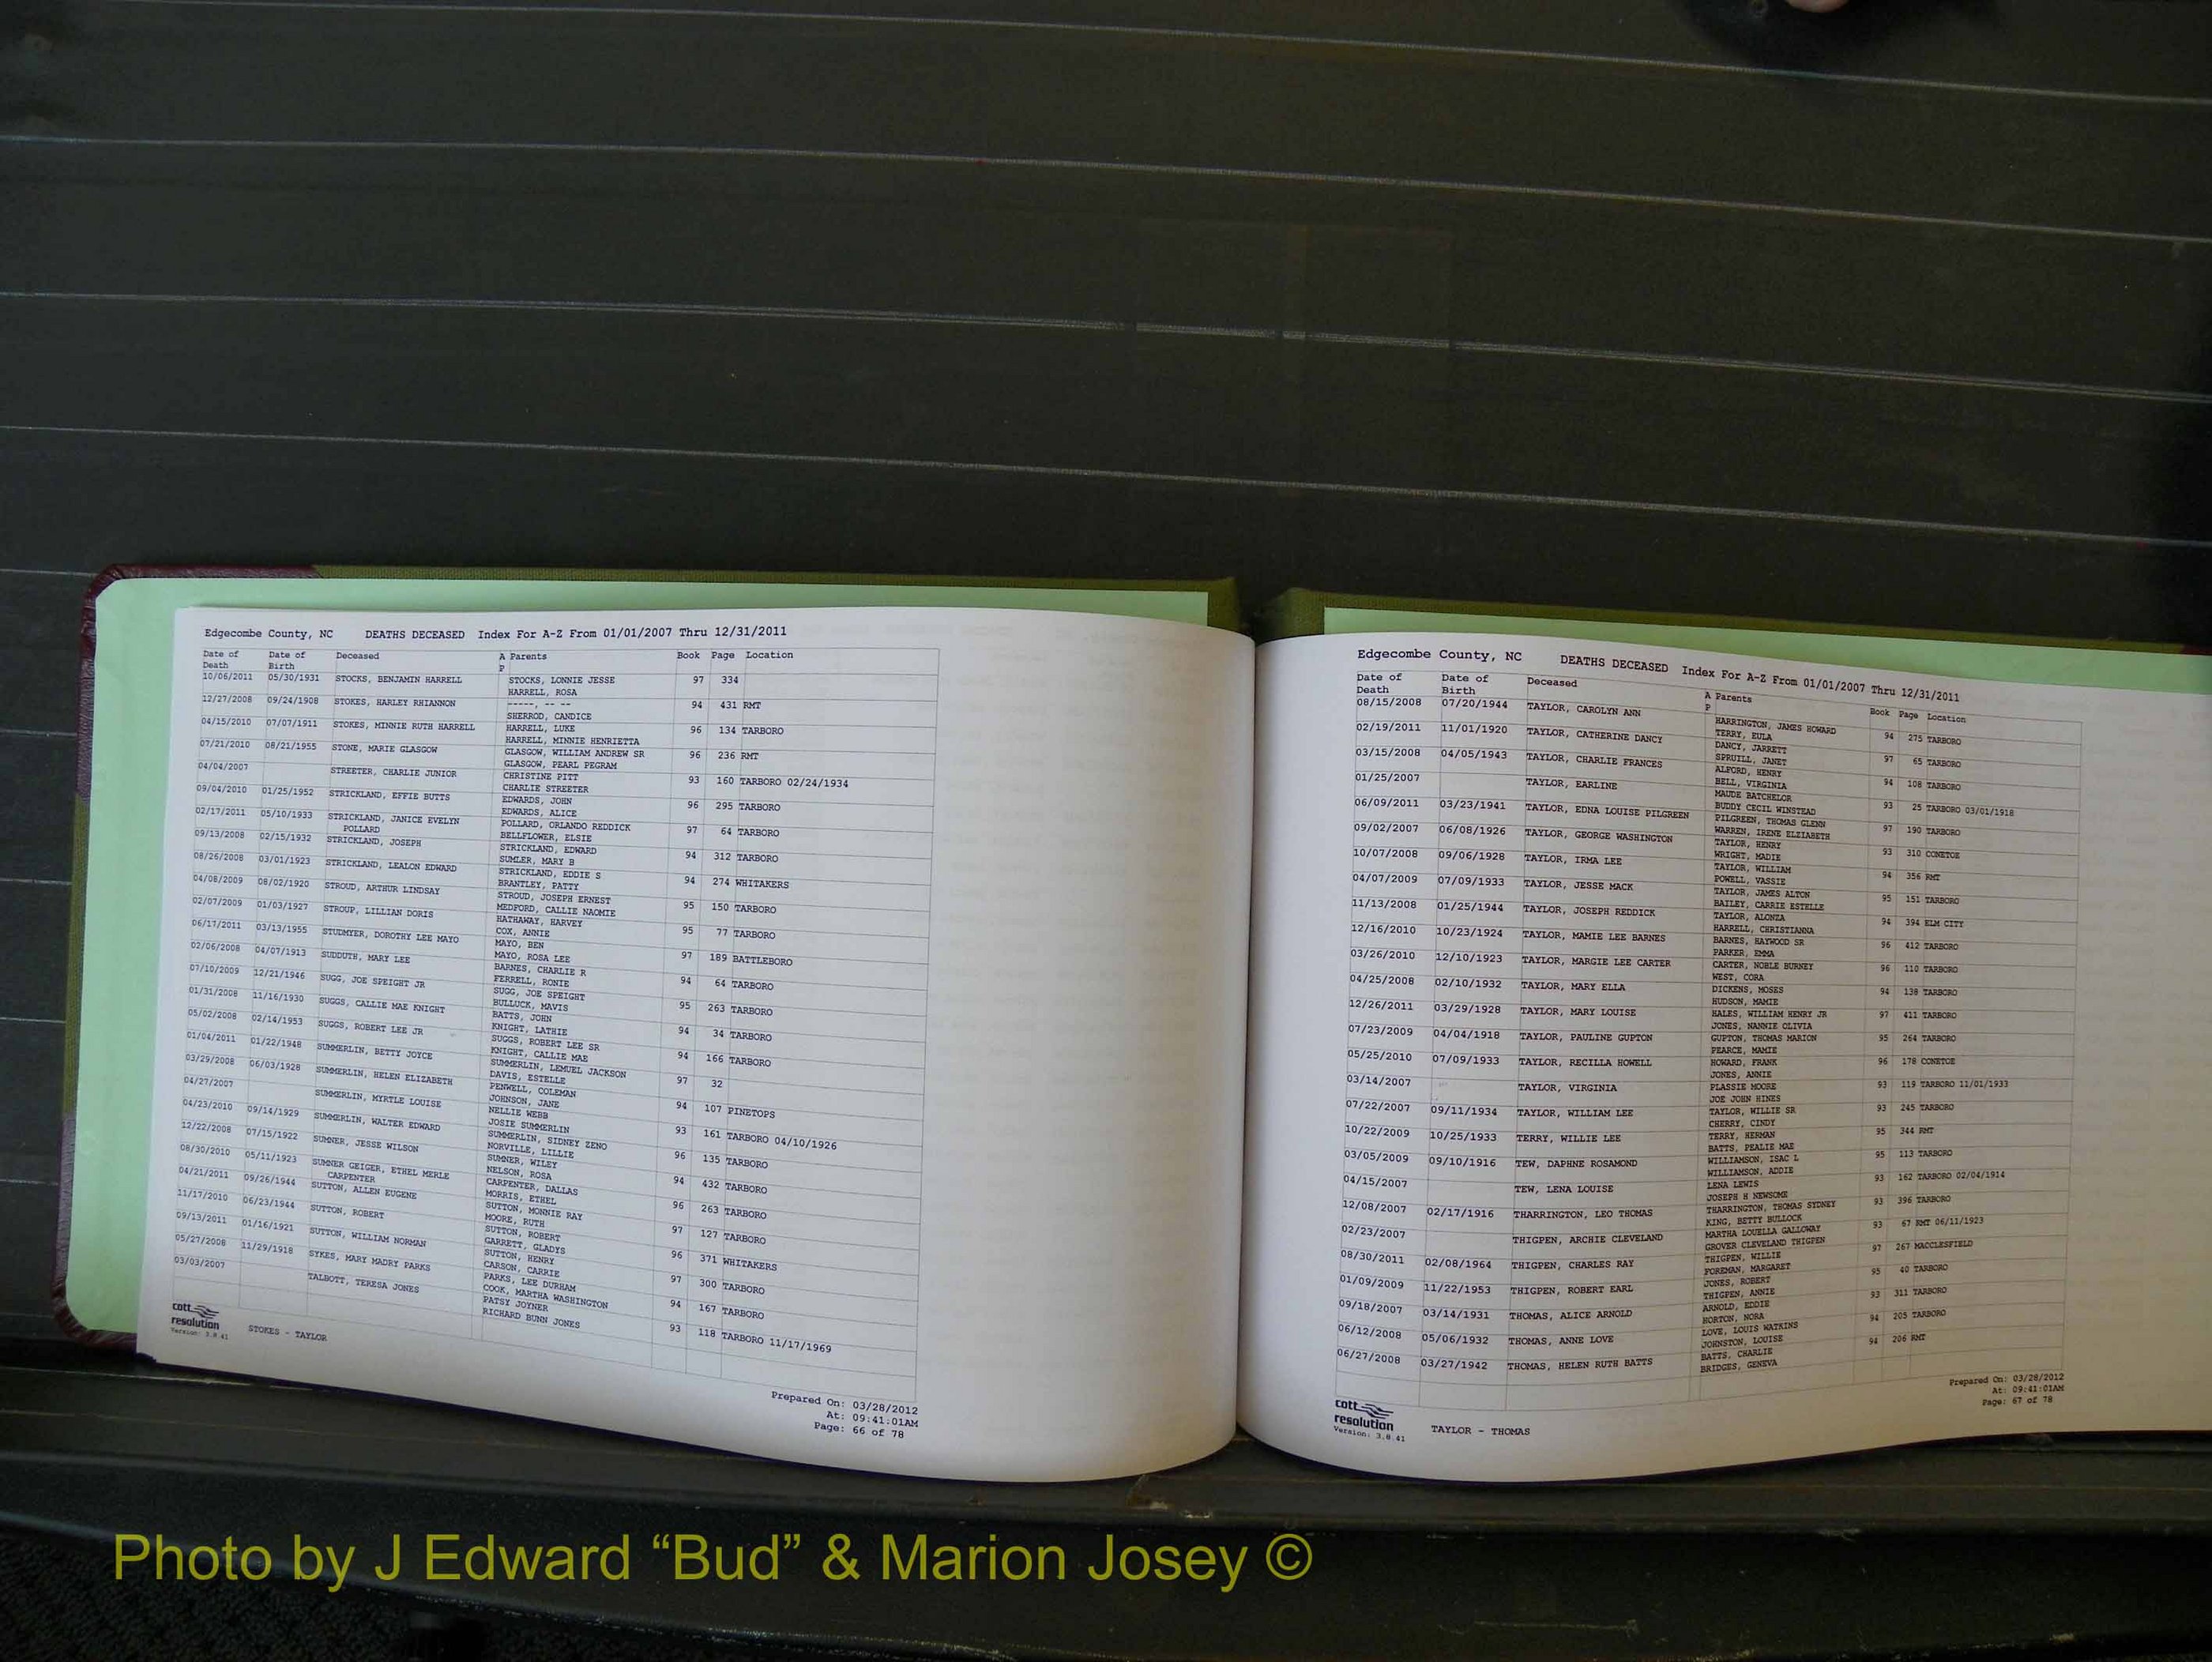 Edgecombe County, NC DEATHS DECEASED Index For A-Z From 01/01/2007 Thru 12/31/2011
Date of Death Date of Birth Deceased A P Parents Book Page Location
10/06/2011 05/30/1931 STOCKS, BENJAMIN HARRELL STOCKS, LONNIE JESSE 97 334
HARRELL, ROSA
12/27/2008 09/24/1908 STOKES, HARLEY RHIANNON -----, -- -- 94 431 RMT
SHERROD, CANDICE
04/15/2010 07/07/1911 STOKES, MINNIE RUTH HARRELL HARRELL, LUKE 96 134 TARBORO
HARRELL, MINNIE HENRIETTA
07/21/2010 08/21/1955 STONE, MARIE GLASGOW GLASGOW, WILLIAM ANDREW SR 96 236 RMT
GLASGOW, PEARL PEGRAM
04/04/2007 STREETER, CHARLIE JUNIOR CHRISTINE PITT 93 160 TARBORO 02/24/1934
CHARLIE STREETER
09/04/2010 01/25/1952 STRICKLAND, EFFIE BUTTS EDWARDS, JOHN 96 295 TARBORO
EDWARDS, ALICE
02/17/2011 05/10/1933 STRICKLAND, JANICE EVELYN POLLARD, ORLANDO REDDICK 97 64 TARBORO
POLLARD BELLFLOWER, ELSIE
09/13/2008 02/15/1932 STRICKLAND, JOSEPH STRICKLAND, EDWARD 94 312 TARBORO
SUMLER, MARY B
08/26/2008 03/01/1923 STRICKLAND, LEALON EDWARD STRICKLAND, EDDIE S 94 274 WHITAKERS
BRANTLEY, PATTY
04/08/2009 08/02/1920 STROUD, ARTHUR LINDSAY STROUD, JOSEPH ERNEST 95 150 TARBORO
MEDFORD, CALLIE NAOMIE
02/07/2009 01/03/1927 STROUP, LILLIAN DORIS HATHAWAY, HARVEY 95 77 TARBORO
COX, ANNIE
06/17/2011 03/13/1955 STUDMYER, DOROTHY LEE MAYO MAYO, BEN 97 189 BATTLEBORO
MAYO, ROSA LEE
02/06/2008 04/07/1913 SUDDUTH, MARY LEE BARNES, CHARLIE R 94 64 TARBORO
FERRELL, RONIE
07/10/2009 12/21/1946 SUGG, JOE SPEIGHT JR SUGG, JOE SPEIGHT 95 263 TARBORO
BULLUCK, MAVIS
01/31/2008 11/16/1930 SUGGS, CALLIE MAE KNIGHT BATTS, JOHN 94 34 TARBORO
KNIGHT, LATHIE
05/02/2008 02/14/1953 SUGGS, ROBERT LEE JR SUGGS, ROBERT LEE SR 94 166 TARBORO
KNIGHT, CALLIE MAE
01/04/2011 01/22/1948 SUMMERLIN, BETTY JOYCE SUMMERLIN, LEMUEL JACKSON 97 32
DAVIS, ESTELLE
03/29/2008 06/03/1928 SUMMERLIN, HELEN ELIZABETH PENWELL, COLEMAN 94 107 PINETOPS
JOHNSON, JANE
04/27/2007 SUMMERLIN, MYRTLE LOUISE NELLIE WEBB 93 161 TARBORO 04/10/1926
JOSIE SUMMERLIN
04/23/2010 09/14/1929 SUMMERLIN, WALTER EDWARD SUMMERLIN, SIDNEY ZENO 96 135 TARBORO
NORVILLE, LILLIE
12/22/2008 07/15/1922 SUMNER, JESSE WILSON SUMNER, WILEY 94 432 TARBORO
NELSON, ROSA
08/30/2010 05/11/1923 SUMNER GEIGER, ETHEL MERLE CARPENTER, DALLAS 96 263 TARBORO
CARPENTER MORRIS, ETHEL
04/21/2011 09/26/1944 SUTTON, ALLEN EUGENE SUTTON, MONNIE RAY 97 127 TARBORO
MOORE, RUTH
11/17/2010 06/23/1944 SUTTON, ROBERT SUTTON, ROBERT 96 371 WHITAKERS
GARRETT, GLADYS
09/13/2011 01/16/1921 SUTTON, WILLIAM NORMAN SUTTON, HENRY 97 300 TARBORO
CARSON, CARRIE
05/27/2008 11/29/1918 SYKES, MARY MADRY PARKS PARKS, LEE DURHAM 94 167 TARBORO
COOK, MARTHA WASHINGTON
03/03/2007 TALBOTT, TERESA JONES PATSY JOYNER 93 118 TARBORO 11/17/1969
RICHARD BUNN JONES
cott
resolution
Version: 3.8.41
STOKES - TAYLOR
Prepared On: 03/28/2012
At: 09:41:01AM
Page: 66 of 78
Edgecombe County, NC DEATHS DECEASED Index For A-Z From 01/01/2007 Thru 12/31/2011
Date of Death Date of Birth Deceased A P Parents Book Page Location
08/15/2008 07/20/1944 TAYLOR, CAROLYN ANN HARRINGTON, JAMES HOWARD 94 275 TARBORO
TERRY, EULA
02/19/2011 11/01/1920 TAYLOR, CATHERINE DANCY DANCY, JARRETT 97 65 TARBORO
SPRUILL, JANET
03/15/2008 04/05/1943 TAYLOR, CHARLIE FRANCES ALFORD, HENRY 94 108 TARBORO
BELL, VIRGINIA
01/25/2007 TAYLOR, EARLINE MAUDE BATCHELOR 93 25 TARBORO 03/01/1918
BUDDY CECIL WINSTEAD
06/09/2011 03/23/1941 TAYLOR, EDNA LOUISE PILGREEN PILGREEN, THOMAS GLENN 97 190 TARBORO
WARREN, IRENE ELZIABETH
09/02/2007 06/08/1926 TAYLOR, GEORGE WASHINGTON TAYLOR, HENRY 93 310 CONETOE
WRIGHT, MADIE
10/07/2008 09/06/1928 TAYLOR, IRMA LEE TAYLOR, WILLIAM 94 356 RMT
POWELL, VASSIE
04/07/2009 07/09/1933 TAYLOR, JESSE MACK TAYLOR, JAMES ALTON 95 151 TARBORO
BAILEY, CARRIE ESTELLE
11/13/2008 01/25/1944 TAYLOR, JOSEPH REDDICK TAYLOR, ALONZA 94 394 ELM CITY
HARRELL, CHRISTIANNA
12/16/2010 10/23/1924 TAYLOR, MAMIE LEE BARNES BARNES, HAYWOOD SR 96 412 TARBORO
PARKER, EMMA
03/26/2010 12/10/1923 TAYLOR, MARGIE LEE CARTER CARTER, NOBLE BURNEY 96 110 TARBORO
WEST, CORA
04/25/2008 02/10/1932 TAYLOR, MARY ELLA DICKENS, MOSES 94 138 TARBORO
HUDSON, MAMIE
12/26/2011 03/29/1928 TAYLOR, MARY LOUISE HALES, WILLIAM HENRY JR 97 411 TARBORO
JONES, NANNIE OLIVIA
07/23/2009 04/04/1918 TAYLOR, PAULINE GUPTON GUPTON, THOMAS MARION 95 264 TARBORO
PEARCE, MAMIE
05/25/2010 07/09/1933 TAYLOR, RECILLA HOWELL HOWARD, FRANK 96 178 CONETOE
JONES, ANNIE
03/14/2007 TAYLOR, VIRGINIA PLASSIE MOORE 93 119 TARBORO 11/01/1933
JOE JOHN HINES
07/22/2007 09/11/1934 TAYLOR, WILLIAM LEE TAYLOR, WILLIE SR 93 245 TARBORO
CHERRY, CINDY
10/22/2009 10/25/1933 TERRY, WILLIE LEE TERRY, HERMAN 95 344 RMT
BATTS, PEALIE MAE
03/05/2009 09/10/1916 TEW, DAPHNE ROSAMOND WILLIAMSON, ISAC L 95 113 TARBORO
WILLIAMSON, ADDIE
04/15/2007 TEW, LENA LOUISE LENA LEWIS 93 162 TARBORO 02/04/1914
JOSEPH H NEWSOME
12/08/2007 02/17/1916 THARRINGTON, LEO THOMAS THARRINGTON, THOMAS SYDNEY 93 396 TARBORO
KING, BETTY BULLOCK
02/23/2007 THIGPEN, ARCHIE CLEVELAND MARTHA LOUELLA GALLOWAY 93 67 RMT 06/11/1923
GROVER CLEVELAND THIGPEN
08/30/2011 02/08/1964 THIGPEN, CHARLES RAY THIGPEN, WILLIE 97 267 MACCLESFIELD
FOREMAN, MARGARET
01/09/2009 11/22/1953 THIGPEN, ROBERT EARL JONES, ROBERT 95 40 TARBORO
THIGPEN, ANNIE
09/18/2007 03/14/1931 THOMAS, ALICE ARNOLD ARNOLD, EDDIE 93 311 TARBORO
HORTON, NORA
06/12/2008 05/06/1932 THOMAS, ANNE LOVE LOVE, LOUIS WATKINS 94 205 TARBORO
JOHNSTON, LOUISE
06/27/2008 03/27/1942 THOMAS, HELEN RUTH BATTS BATTS, CHARLIE 94 206 RMT
BRIDGES, GENEVA
cott
resolution
Version: 3.8.41
TAYLOR - THOMAS
Prepared On: 03/28/2012
At: 09:41:01AM
Page: 67 of 78
Photo by J Edward “Bud” & Marion Josey ©